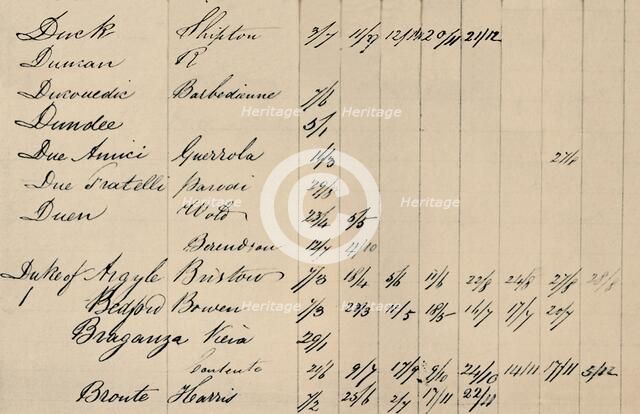 Duck Shipton 3/7 11/9 20/11 21/12
Duncan R
Ducouedic Barbedienne 7/6
Dundee 5/1
Due Amici Guerrola 14/3 27/6
Due Fratelli Parodi 29/3
Duen Wold 23/4 5/5
Berendson 12/7 4/10
Duke of Argyle Bristow 7/3 18/4 5/6 13/6 22/8 24/8 27/8 28/8
Bedford Bowen 7/3 23/3 11/5 18/5 16/7 17/7 20/7
Braganza Vieia 29/1
Contente 21/6 9/7 17/9 9/10 24/10 14/11 17/11 5/12
Bronte Harris 7/2 25/6 2/7 17/11 22/11
Heritage Heritage
Heritage Heritage
Heritage Heritage
©